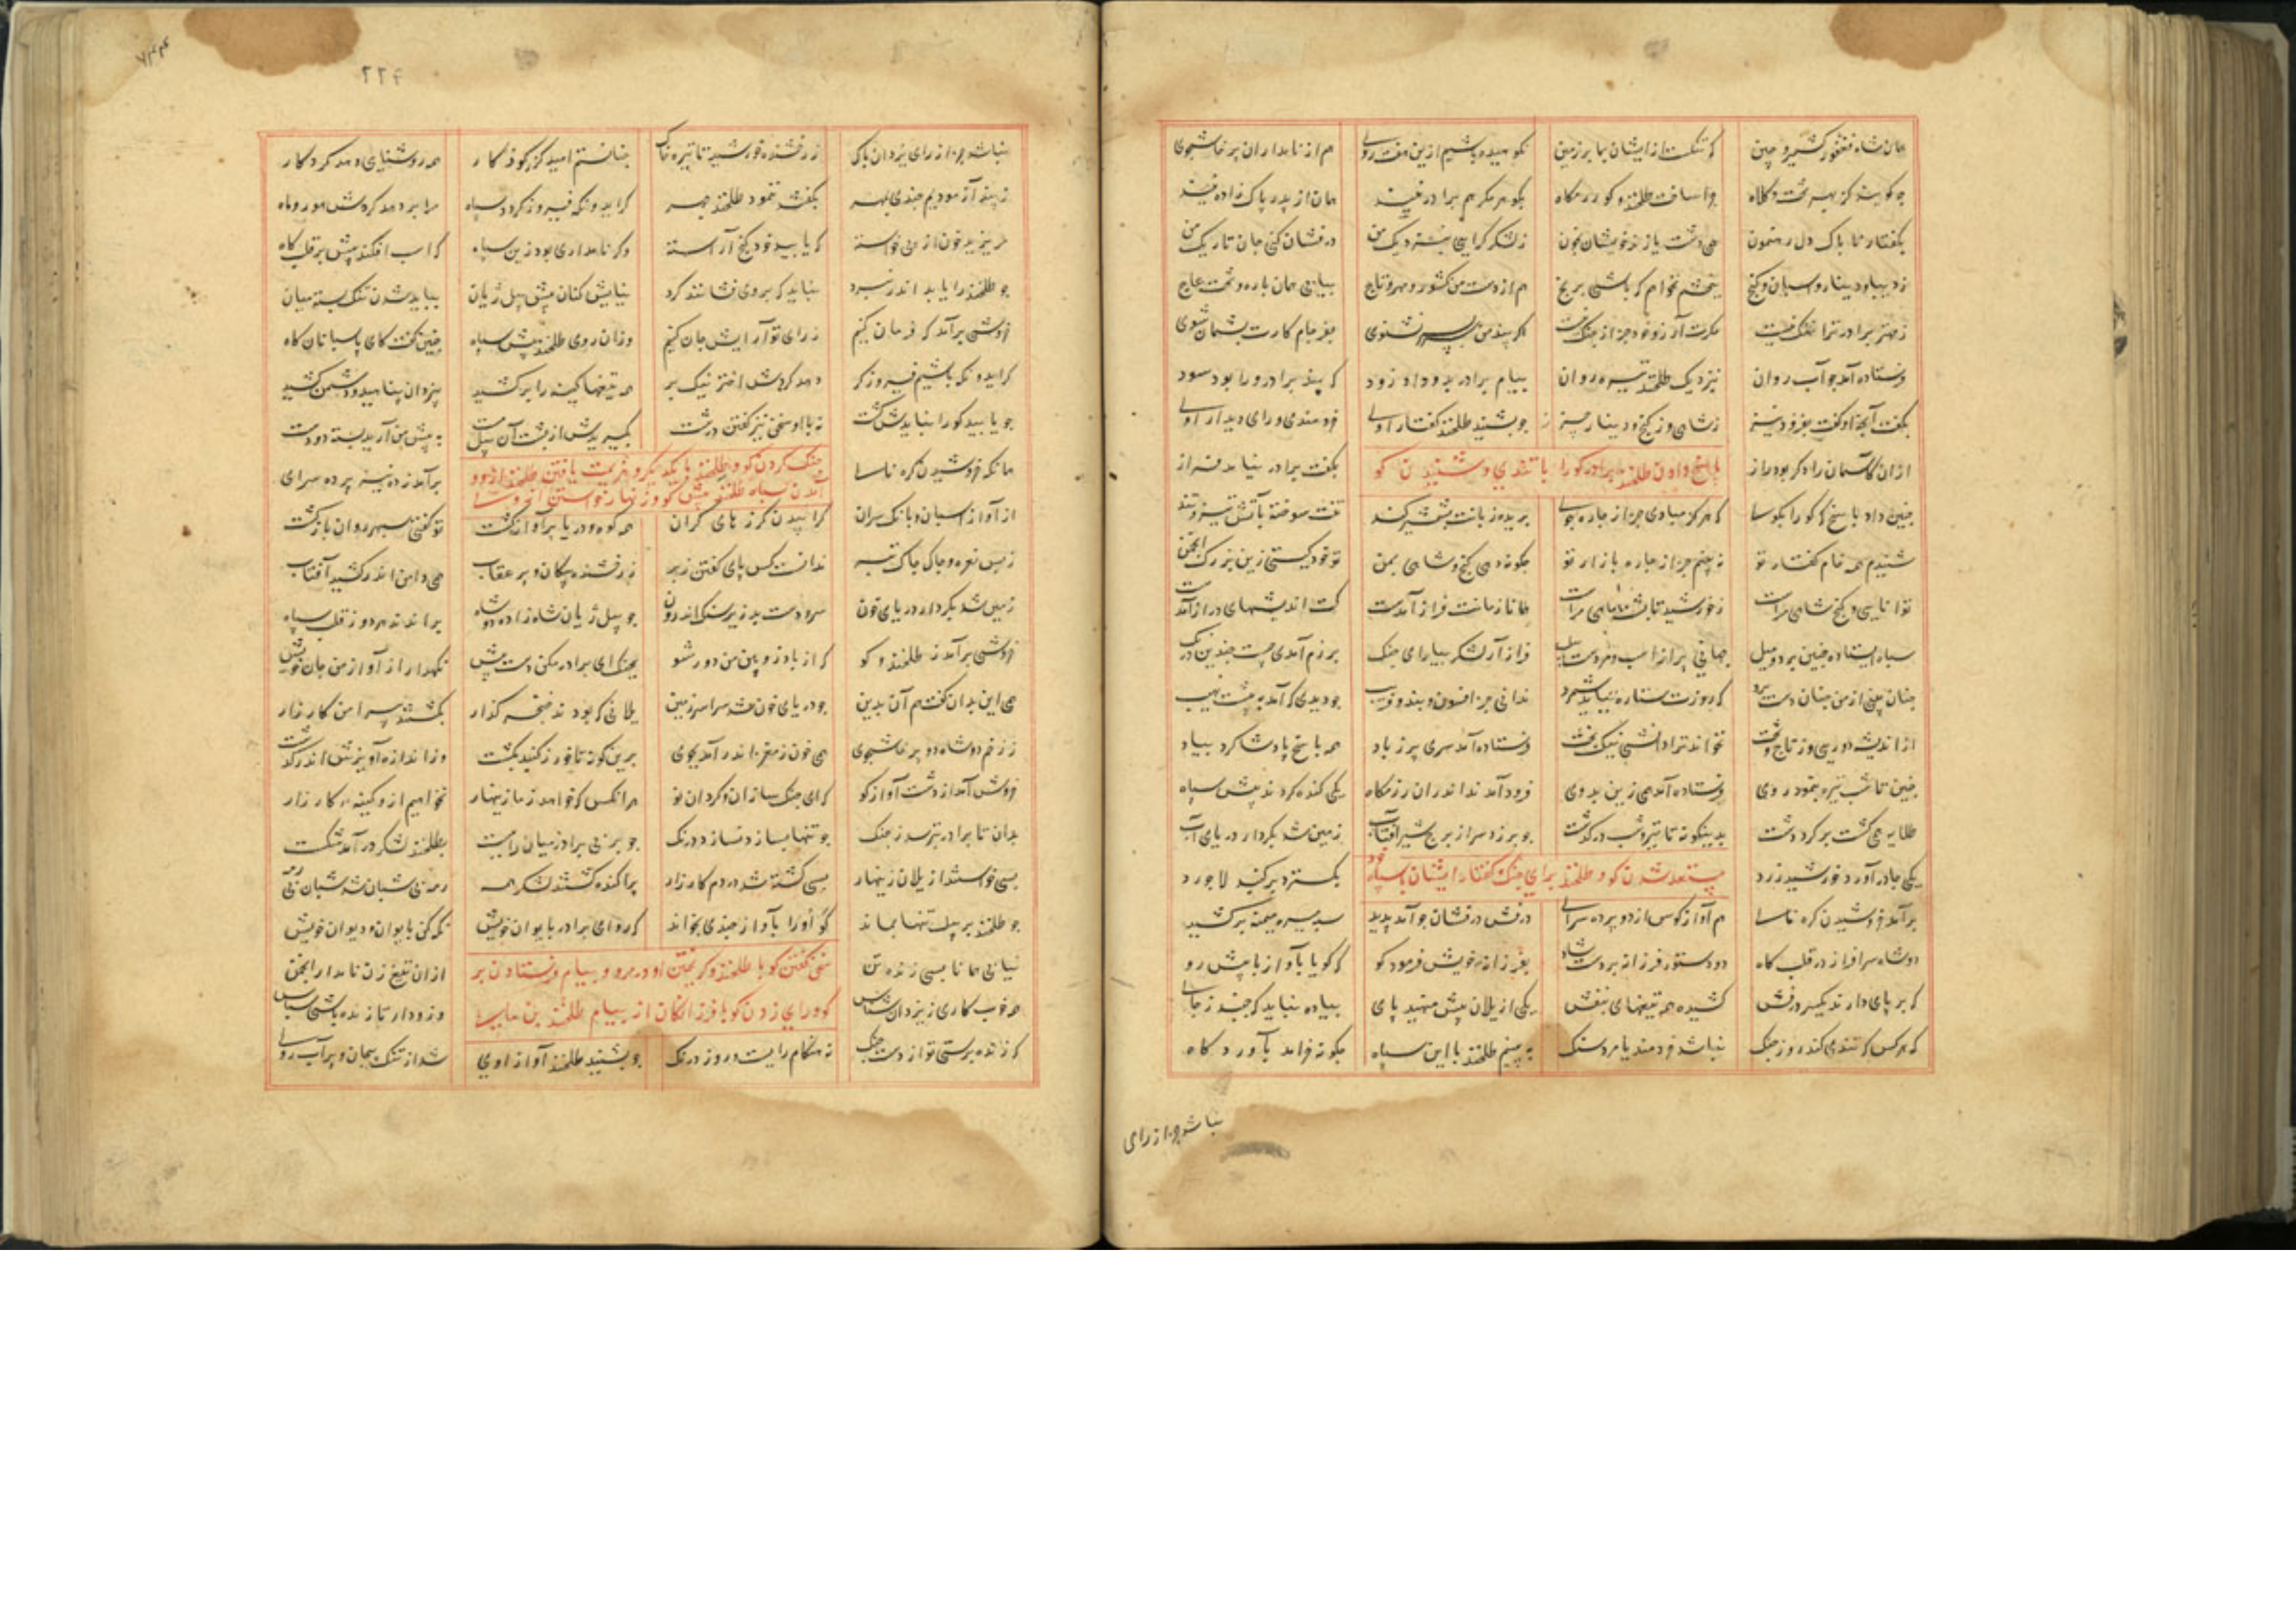 همان شاه فغفور کشمیر و چین که تنکست از ایشان بما بر زمین نکوهیده باشیم ازین هفت روی هم از نامداران پرخاشجوی
چو گویند کز بهر تخت و کلاه چرا ساخت طلخند و گو رزمگاه بگوهر مگر هم برادر نیند همان از پدر پاک زاده نیند
بگفتار ناپاک دل رهنمون همی دشت یازند خویشان بخون ز لشکر گر آیی بنزدیک من درفشان کنی جان تاریک من
ز دیبا و دینار و اسپان و گنج ببخشم نخواهم که باشی برنج هم از دست من کشور و مهر و تاج بیابی همان یاره و تخت عاج
ز مهتر برادر ترا ننگ نیست مگرت آرزو خود جز از جنگ نیست اگر پند من سربسر نشنوی بفرجام کارت پشیمان شوی
فرستاده آمد چو آب روان بنزدیک طلخند تیره روان پیام برادر بدو داد زود که پند برادر ورا بود سود
بگفت آنچه او گفت بفزود نیز ز شاهی و ز گنج و دینار چیز چو بشنید طلخند گفتار اوی خردمندی و رای دیدار اوی
از آن کآسمان را دگر بود راز
پاسخ دادن طلخند برادر گو را با تندی و شنیدن گو
بگفت برادر نیامد فراز
چنین داد پاسخ که گو را بگو که هرگز مبادی جز از چاره جوی بریده زبانت بشمشیر کند تنت سوخته بآتش تیز و تند
شنیدم همه خام گفتار تو نه بینم جز از چاره بازار تو چگونه دهی گنج و شاهی بمن تو خود کیستی زین بزرگ انجمن
توانایی و گنج شاهی مراست ز خورشید تا پشت ماهی مراست همانا زمانت فراز آمدست کت اندیشهای دراز آمدست
سپاه ایستاده چنین بر دو میل جهانی پر از اسب و مردست و پیل فراز آر لشکر بیارای جنگ برزم آمدی چیست چندین درنگ
چنان بینی از من چنان دستبرد که روزت ستاره نباید شمرد ندانی جز افسون و بند و فریب چو دیدی که آمد بپشتت نهیب
از اندیشه دوریی وز تاج و تخت نخواند ترا دانشی نیکبخت فرستاده آمد سری پر ز باد همه پاسخ پادشا کرد یاد
چنین تا شب تیره بنمود روی فرستاده آمد همی زین بدوی فرود آمدند اندران رزمگاه یکی کنده کردند پیش سپاه
طلایه همی گشت بر گرد دشت بدینگونه تا تیره شب درگذشت چو برزد سر از برج شیر آفتاب زمین شد بکردار دریای آب
یکی چادر آورد خورشید زرد
مستعد شدن گو و طلخند برای جنگ گفتار ایشان با سپاه خود
بگسترد بر گنبد لاجورد
برآمد خروشیدن کره نای هم آواز کوس از دو پرده سرای درفش درفشان چو آمد پدید سپه میسره میمنه برکشید
دو شاه سرافراز در قلبگاه دو دستور فرزانه بر دست شاه بفرزانه خویش فرمود گو که گویا بآواز با پیش رو
که بر پای دارند یکسر درفش کشیده همه تیغهای بنفش یکی از یلان پیش منهید پای پیاده نباید که جنبد ز جای
که هر کس که تندی کند روز جنگ نباشد خردمند یا مرد سنگ به بینم طلخند با این سپاه چگونه خرامد بآوردگاه
نباشد جز از رای
نباشد جز از رای یزدان پاک ز رخشنده خورشید تا تیره خاک چنانستم امید کز کردگار همه روشنایی دهد کردگار
ز پند آزمودیم چندی بمهر بگفت ننمود طلخند چهر گر ایدونکه فیروز گردد سپاه مرا بر دهد گردش هور و ماه
مریزید خون از پی خواسته که یابید خود گنج آراسته وگر نامداری بود زین سپاه که اسب افکند پیش بر قلبگاه
چو طلخند را یابد اندر نبرد نباید که بر وی فشانند گرد نیایش کنان پیش پیل ژیان بباید شدن تنگ بسته میان
خروشی برآمد که فرمان کنیم ز رای تو آرایش جان کنیم وزان روی طلخند پیش سپاه چنین گفت کای پاسبانان گاه
گر ایدونکه باشیم فیروزگر دهد گردش اختر نیک بر همه تیغها کینه را برکشید بیزدان پناهید و دشمن کشید
چو یابید گو را نبایدش کشت نه با او سخن نیز گفتن درشت بگیریدش از پشت آن پیل مست به پیش من آرید بسته دو دست
همانگه خروشیدن کره نای
جنگ کردن گو و طلخند با یکدیگر و هزیمت یافتن طلخند از گو و
آمدن سپاه طلخند پیش گو و زنهار خواستن از وی
برآمد ز دهلیز پرده سرای
از آواز اسپان و بانگ سران گراییدن گرزهای گران همه کوه و دریا پرآواز گشت تو گفتی سپهر روان بازگشت
ز بس نعره و چاک چاک تبر ندانست کس پای گفتن ز بر ز رخشنده پیکان و پر عقاب همی دامن اندر کشید آفتاب
زمین شد بکردار دریای خون سر و دست بد زیر سنگ اندرون چو پیل ژیان شاه زاده دو شاه براندند هر دو ز قلب سپاه
خروشی برآمد ز طلخند و گو که از باد زوپین من دور شو بجنگ ای برادر مکن دست پیش نگهدار از آواز من جان خویش
همی این بدان گفت هم آن بدین چو دریای خون شد سراسر زمین یلانی که بودند خنجرگذار بگشتند پیرامن کارزار
ز زخم دو شاه دو پرخاشجوی همی خون ز مغز اندر آمد بجوی برین گونه تا خور ز گنبد بگشت وز اندازه آویزش اندر گذشت
خروش آمد از دشت آواز گو که ای جنگ سازان و گردان نو هر آنکس که خواهد ز ما زینهار نخواهیم ازو کینه کارزار
بدان تا برادر بترسد ز جنگ چو تنها بماند نسازد درنگ بطلخند لشکر درآمد شکست
بسی خواستند از یلان زینهار بسی کشته شد در دم کارزار پراکنده گشتند لشکر همه رمه بی شبان شد شبان بی رمه
چو طلخند بر پیل تنها بماند گو او را بآواز چندی بخواند که رو ای برادر بایوان خویش نگه کن بایوان و دیوان خویش
نیابی همانا بسی زنده تن
سخن گفتن گو با طلخند و گریختن او در مرو و پیام فرستادن بر
ازان تیغ زن نامدار انجمن
همه خوب کاری ز یزدان شناس
گو و رای زدن گو با فرزانگان از پیام طلخند
وزو دار تا زنده باشی سپاس
که زنده برستی تو از دست جنگ نه هنگام رایست و روز درنگ چو بشنید طلخند آواز اوی شد از ننگ پیچان و پر آب روی